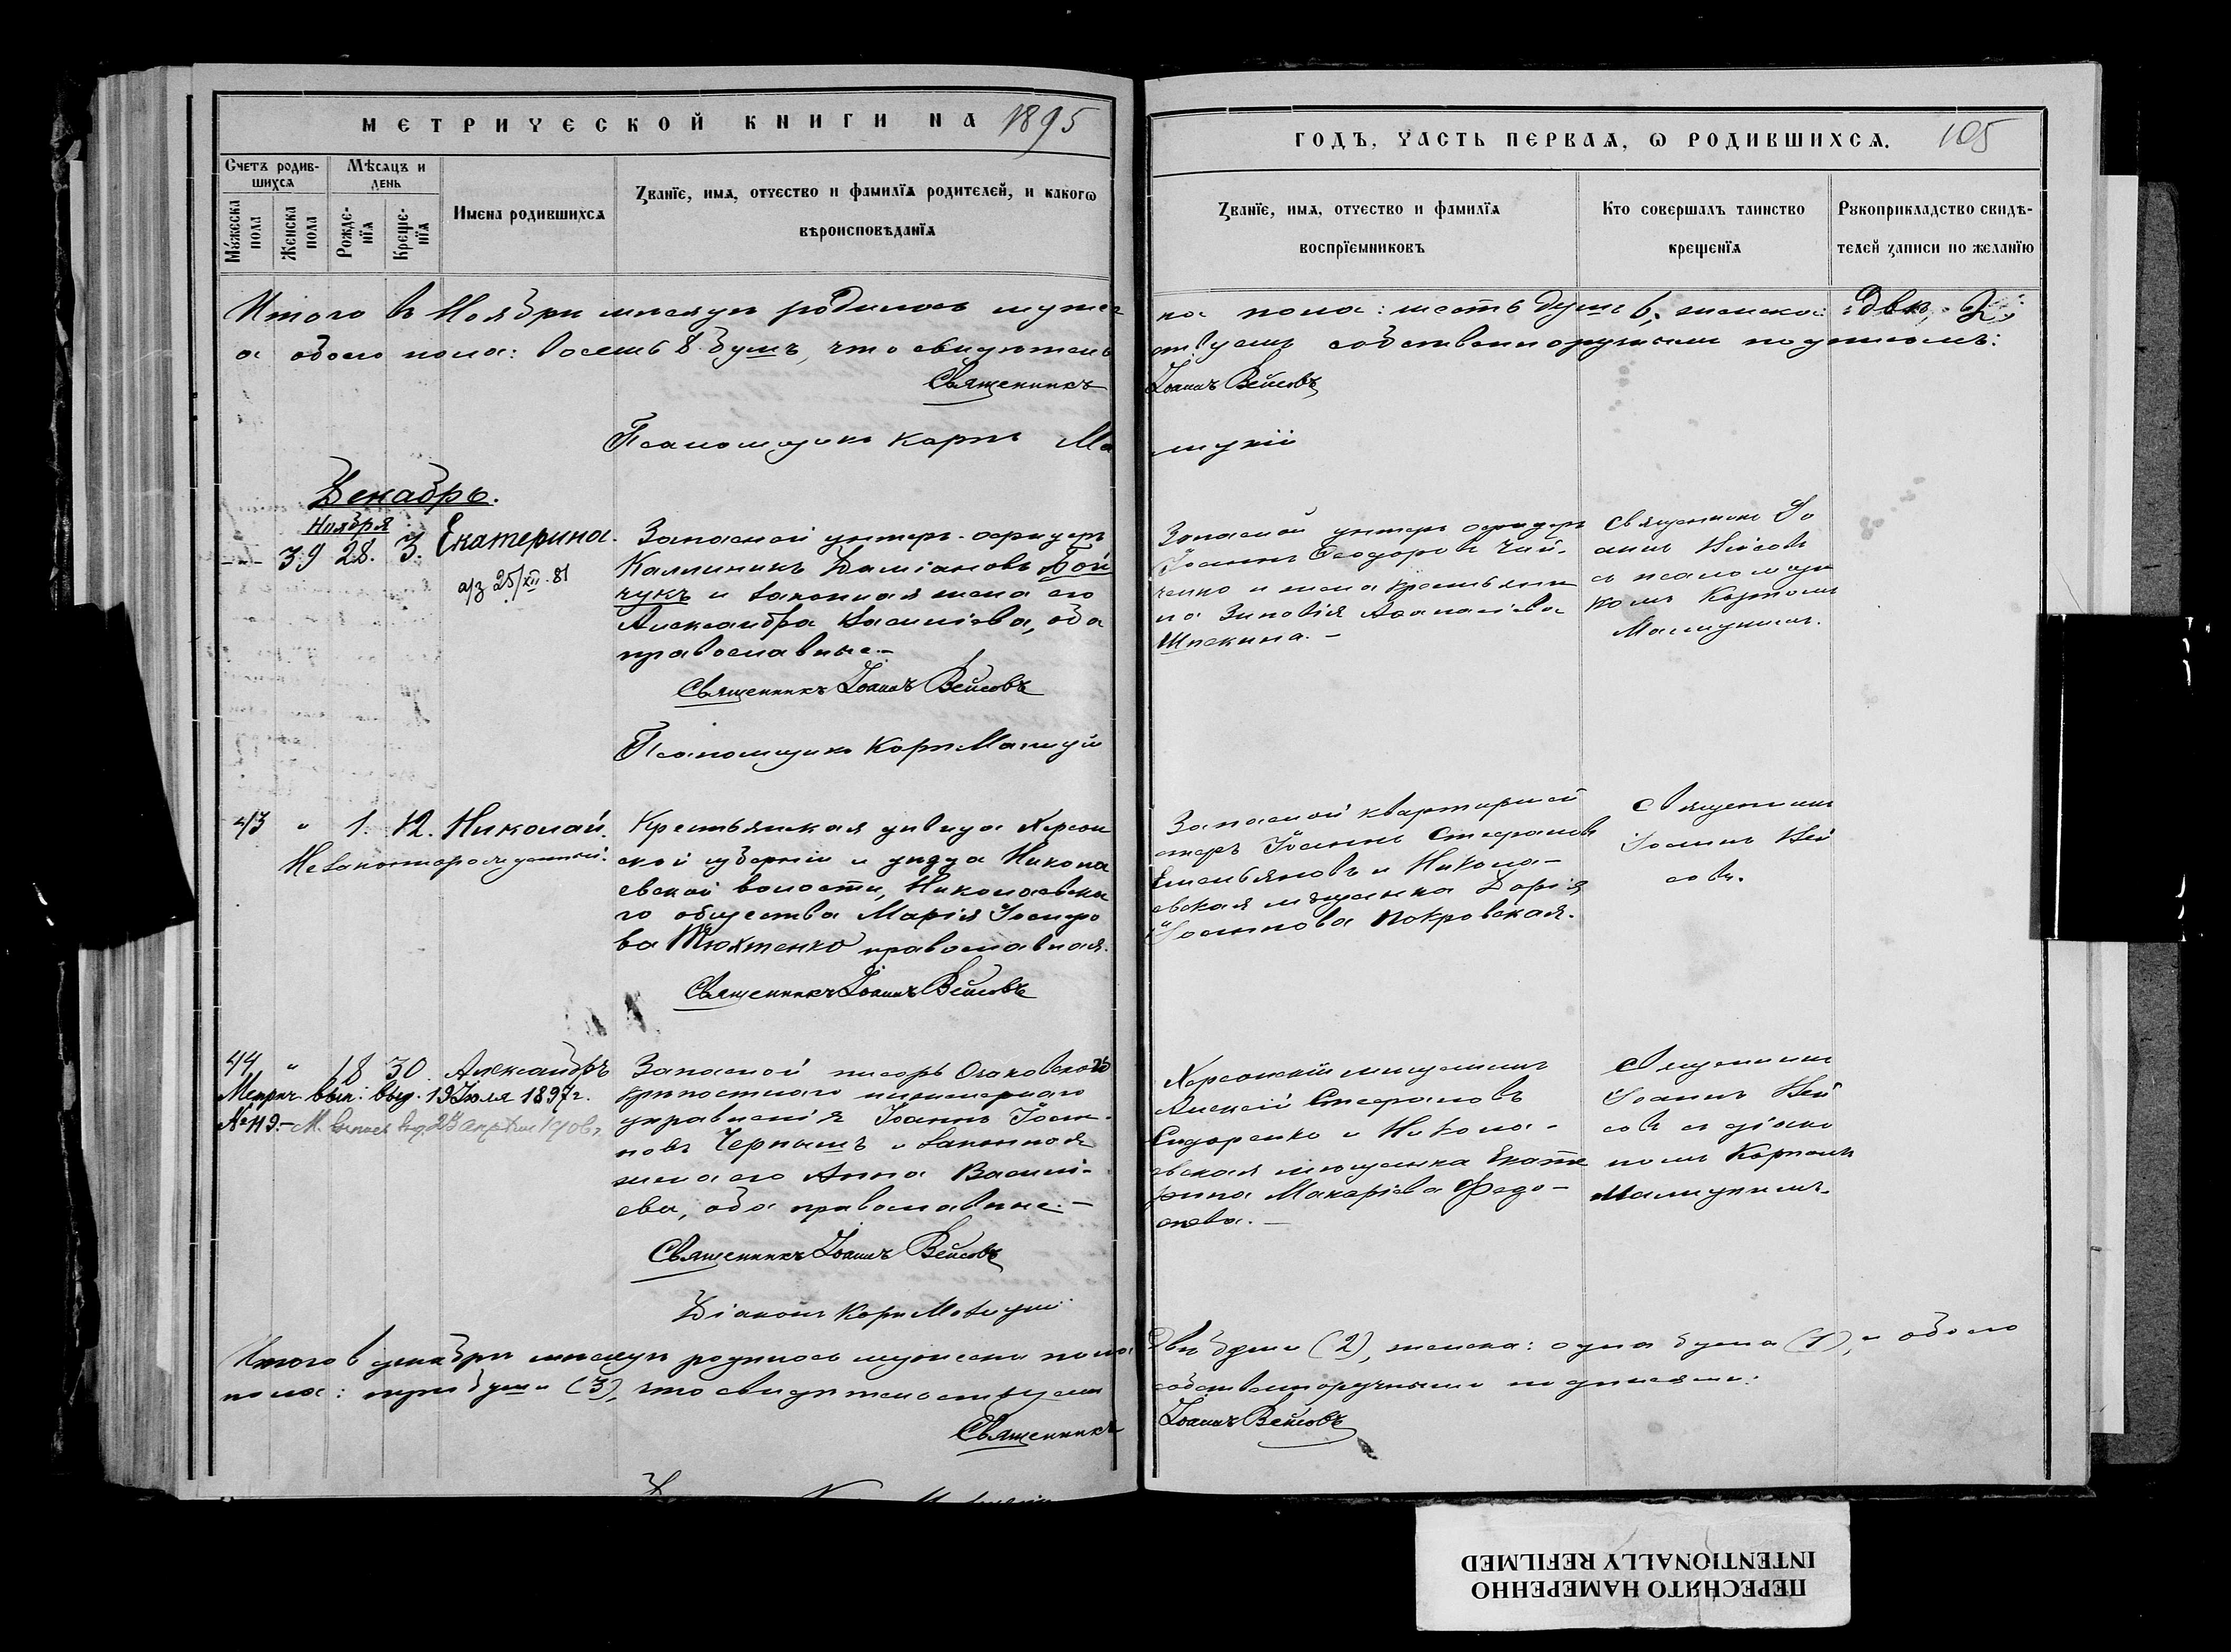 МЕТРИЧЕСКОЙ КНИГИ НА 1895
ГОДЪ, ЧАСТЬ ПЕРВАѦ, Ѡ РОДИВШИХСѦ. 105
Счетъ родив-
шихсѧ
Мѣсѧцъ и
день
Мꙋжеска пола
Женска пола
Рожде-
нїѧ
Креще-
нїѧ
Имена родившихсѧ
Званїе, имѧ, отчество и фамилїѧ родителей, и какогѡ
вѣроисповѣданїѧ
Званїе, имѧ, отчество и фамилїѧ
воспрїемниковъ
Кто совершалъ таинство
крещенїѧ
Рꙋкоприкладство свидѣ-
телей записи по желанїю
Итого въ Ноябрѣ мѣсяцѣ родилось мужес
ка пола: шесть душъ 6, женска: двѣ, 2,
а обоего пола: восемь 8 душъ, что свидѣтель
ствуемъ собственноручнымъ подписомъ:
Священникъ
Іоаннъ Вейсовъ
Псаломщикъ Карпъ Ма
Декабрь.
Ноября
39 28. 3. Екатерина.
а/з 25/XII-81
Запасной унтеръ-офицеръ
Каллиникъ Даміановъ Бой
чукъ и законная жена его
Александра Васильева, оба
православные.-
Священникъ Іоаннъ Вейсовъ
Псаломщикъ Карпъ
Запасной унтеръ офицеръ
Іоаннъ Ѳеодоровъ Чай-
ченко и жена крестьяни
на Зиновія Аѳанасіева
Священникъ Іо
аннъ Вейсовъ
съ псаломщи
комъ Карпомъ
43 " 1. 12. Николай.
Незаконнорожденный.
Крестьянская дѣвица Херсон
ской губерніи и уѣзда Никола
евской волости, Николаевска
го общества Марія Іосифо
ва Тюхтенко православная.
Священникъ Іоаннъ Вейсовъ
Запасной квартирмей
стеръ Іоаннъ Стефановъ
Емельяновъ и Никола-
евская мѣщанка Дарія
Іоаннова Покровская.
Священникъ
Іоаннъ Вей
совъ.
44 " 18 30. Александръ
Метрич. вып: выд. 19 Іюля 1897 г.
№ 119.- М. выпись выд. 23 апрѣля 1906 г.
Запасной писарь Очаковскаго
крѣпостного инженернаго
управленія Іоаннъ Іоан-
новъ Чернышъ и законная
жена его Анна Василі-
ева, оба православные.-
Священникъ Іоаннъ Вейсовъ
Діаконъ Карпъ
Херсонскій мѣщанинъ
Алексій Стефановъ
Сидоренко и Никола-
евская мѣщанка Екате
рина Макаріева Ѳедо-
Священникъ
Іоаннъ Вей
совъ съ діако
номъ Карпомъ
Итого въ декабрѣ мѣсяцѣ родилось мужеска пола
двѣ души (2), женска: одна душа (1), а обоего
пола: три души (3), что свидѣтельствуемъ
собственноручными подписями:
Священникъ
Іоаннъ Вейсовъ
ПЕРЕСНЯТО НАМЕРЕННО
INTENTIONALLY REFILMED